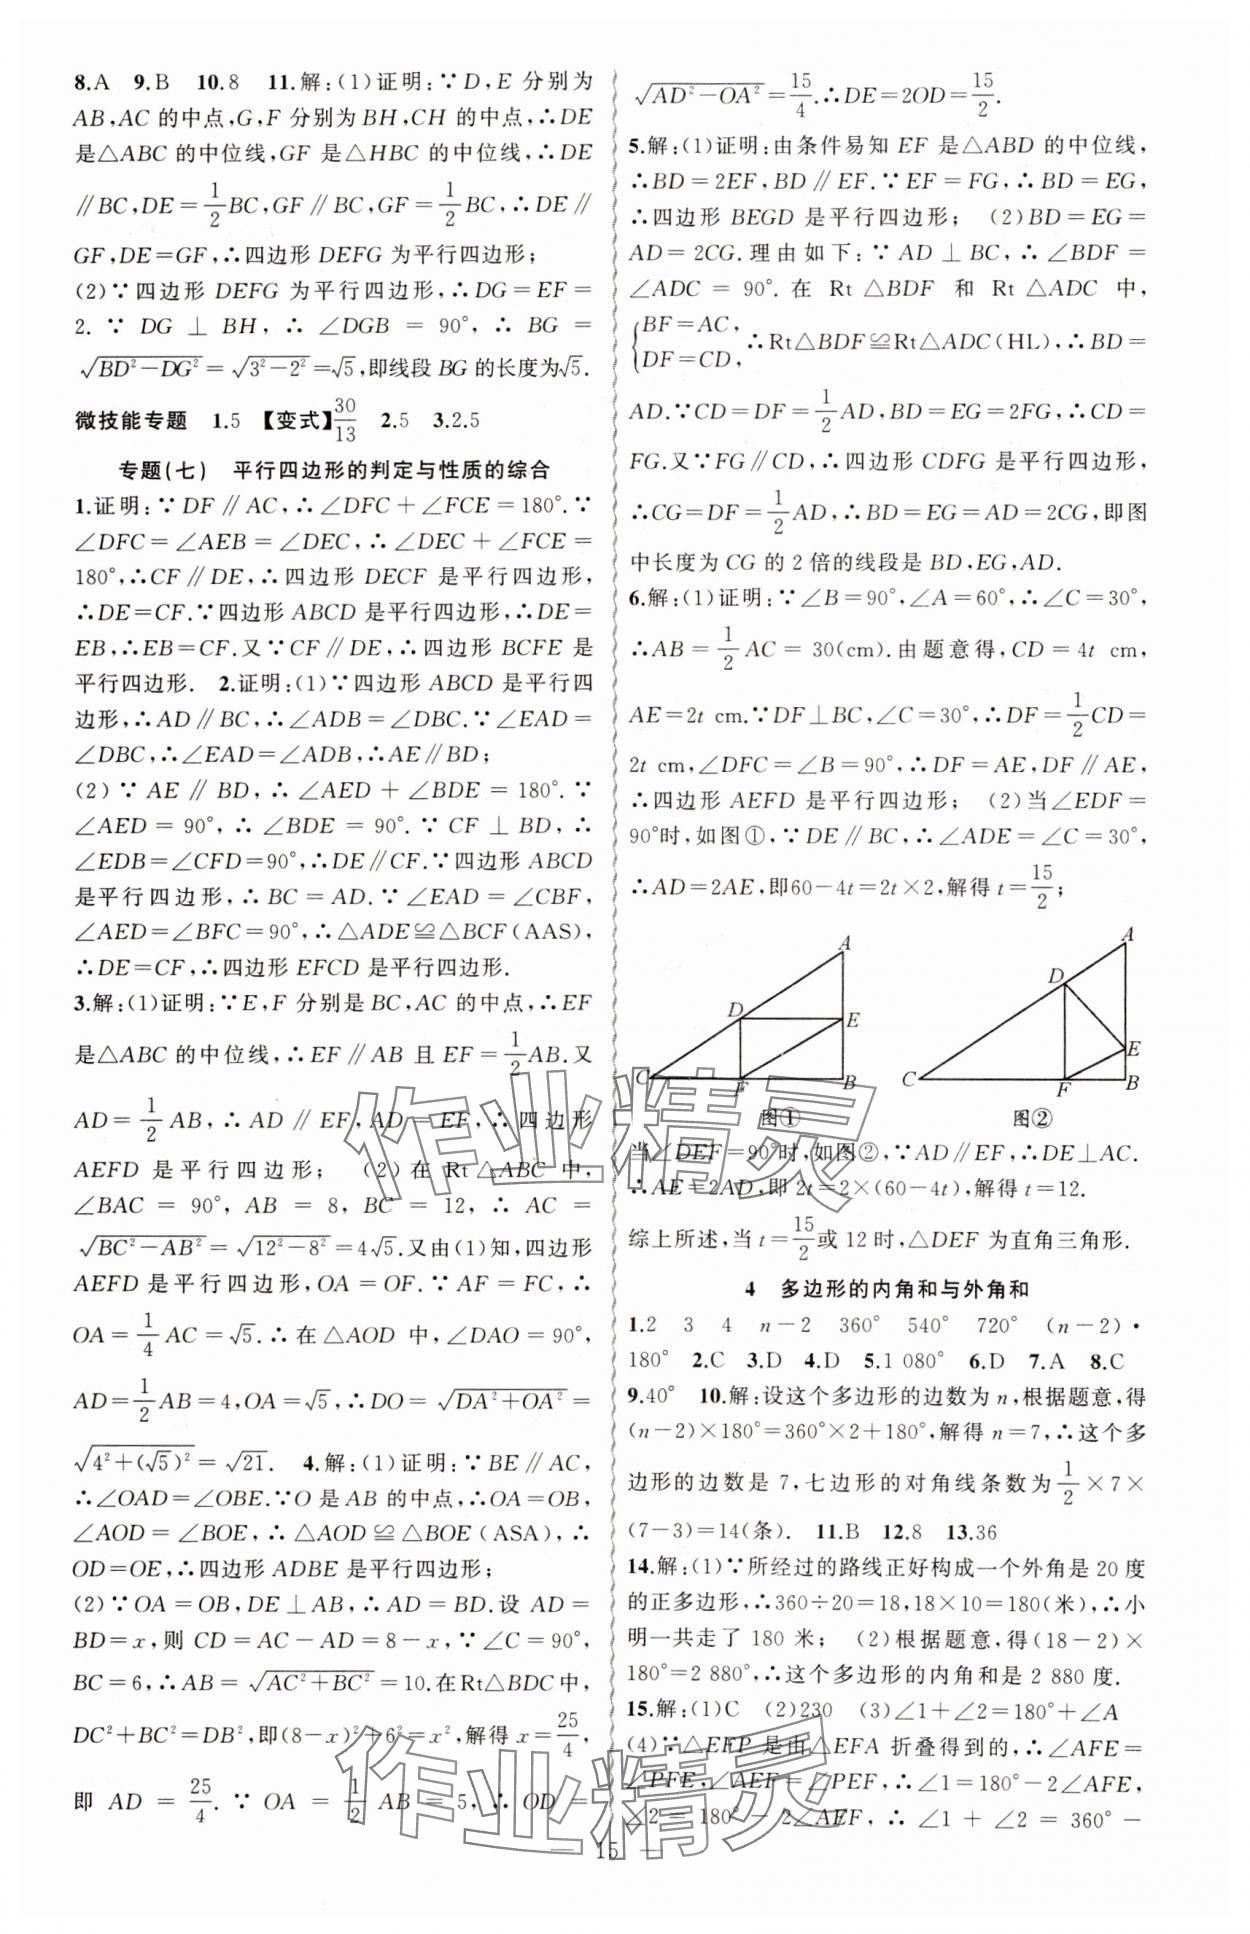 8.A 9.B 10.8 11.解:(1)证明:∵D,E 分别为
AB,AC 的中点,G,F 分别为 BH,CH 的中点,∴DE
是△ABC 的中位线,GF 是△HBC 的中位线,∴DE
∥BC,DE=1/2BC,GF∥BC,GF=1/2BC,∴DE∥
GF,DE=GF,∴四边形 DEFG 为平行四边形;
(2)∵四边形 DEFG 为平行四边形,∴DG=EF=
2.∵DG⊥BH,∴∠DGB=90°,∴BG=
√(BD²-DG²)=√(3²-2²)=√5,即线段 BG 的长度为√5.
微技能专题 1.5 【变式】30/13 2.5 3.2.5
专题(七) 平行四边形的判定与性质的综合
1.证明:∵DF∥AC,∴∠DFC+∠FCE=180°.∵
∠DFC=∠AEB=∠DEC,∴∠DEC+∠FCE=
180°,∴CF∥DE,∴四边形 DECF 是平行四边形,
∴DE=CF.∵四边形 ABCD 是平行四边形,∴DE=
EB,∴EB=CF.又∵CF∥DE,∴四边形 BCFE 是
平行四边形. 2.证明:(1)∵四边形 ABCD 是平行四
边形,∴AD∥BC,∴∠ADB=∠DBC.∵∠EAD=
∠DBC,∴∠EAD=∠ADB,∴AE∥BD;
(2)∵AE∥BD,∴∠AED+∠BDE=180°.∵
∠AED=90°,∴∠BDE=90°.∵CF⊥BD,∴
∠EDB=∠CFD=90°,∴DE∥CF.∵四边形 ABCD
是平行四边形,∴BC=AD.∵∠EAD=∠CBF,
∠AED=∠BFC=90°,∴△ADE≌△BCF(AAS),
∴DE=CF,∴四边形 EFCD 是平行四边形.
3.解:(1)证明:∵E,F 分别是 BC,AC 的中点,∴EF
是△ABC 的中位线,∴EF∥AB 且 EF=1/2AB.又
AD=1/2AB,∴AD∥EF,AD=EF,∴四边形
AEFD 是平行四边形; (2)在 Rt△ABC 中,
∠BAC=90°,AB=8,BC=12,∴AC=
√(BC²-AB²)=√(12²-8²)=4√5.又由(1)知,四边形
AEFD 是平行四边形,OA=OF.∵AF=FC,∴
OA=1/4AC=√5.∴在△AOD 中,∠DAO=90°,
AD=1/2AB=4,OA=√5,∴DO=√(DA²+OA²)=
√(4²+(√5)²)=√21. 4.解:(1)证明:∵BE∥AC,
∴∠OAD=∠OBE.∵O 是 AB 的中点,∴OA=OB,
∠AOD=∠BOE,∴△AOD≌△BOE(ASA),∴
OD=OE,∴四边形 ADBE 是平行四边形;
(2)∵OA=OB,DE⊥AB,∴AD=BD.设 AD=
BD=x,则 CD=AC-AD=8-x,∵∠C=90°,
BC=6,∴AB=√(AC²+BC²)=10.在 Rt△BDC 中,
DC²+BC²=DB²,即(8-x)²+6²=x²,解得 x=25/4,
即 AD=25/4.∵OA=1/2AB=5,∴OD=
√(AD²-OA²)=15/4.∴DE=2OD=15/2.
5.解:(1)证明:由条件易知 EF 是△ABD 的中位线,
∴BD=2EF,BD∥EF.∵EF=FG,∴BD=EG,
∴四边形 BEGD 是平行四边形; (2)BD=EG=
AD=2CG.理由如下:∵AD⊥BC,∴∠BDF=
∠ADC=90°.在 Rt△BDF 和 Rt△ADC 中,
{BF=AC,
DF=CD, ∴Rt△BDF≌Rt△ADC(HL),∴BD=
AD.∵CD=DF=1/2AD,BD=EG=2FG,∴CD=
FG.又∵FG∥CD,∴四边形 CDFG 是平行四边形,
∴CG=DF=1/2AD,∴BD=EG=AD=2CG,即图
中长度为 CG 的 2 倍的线段是 BD,EG,AD.
6.解:(1)证明:∵∠B=90°,∠A=60°,∴∠C=30°,
∴AB=1/2AC=30(cm).由题意得,CD=4t cm,
AE=2t cm.∵DF⊥BC,∠C=30°,∴DF=1/2CD=
2t cm,∠DFC=∠B=90°,∴DF=AE,DF∥AE,
∴四边形 AEFD 是平行四边形; (2)当∠EDF=
90°时,如图①,∵DE∥BC,∴∠ADE=∠C=30°,
∴AD=2AE,即60-4t=2t×2,解得 t=15/2;
A D E C F B
图①
A D E C F B
图②
当∠DEF=90°时,如图②,∵AD∥EF,∴DE⊥AC.
∴AE=2AD,即 2t=2×(60-4t),解得 t=12.
综上所述,当 t=15/2或 12 时,△DEF 为直角三角形.
4 多边形的内角和与外角和
1.2 3 4 n-2 360° 540° 720° (n-2)·
180° 2.C 3.D 4.D 5.1 080° 6.D 7.A 8.C
9.40° 10.解:设这个多边形的边数为 n,根据题意,得
(n-2)×180°=360°×2+180°,解得 n=7,∴这个多
边形的边数是 7,七边形的对角线条数为1/2×7×
(7-3)=14(条). 11.B 12.8 13.36
14.解:(1)∵所经过的路线正好构成一个外角是 20 度
的正多边形,∴360÷20=18,18×10=180(米),∴小
明一共走了 180 米; (2)根据题意,得(18-2)×
180°=2 880°,∴这个多边形的内角和是 2 880 度.
15.解:(1)C (2)230 (3)∠1+∠2=180°+∠A
(4)∵△EFP 是由△EFA 折叠得到的,∴∠AFE=
∠PFE,∠AEF=∠PEF,∴∠1=180°-2∠AFE,
∠2=180°-2∠AEF,∴∠1+∠2=360°-
— 15 —
作业精灵
作业精灵